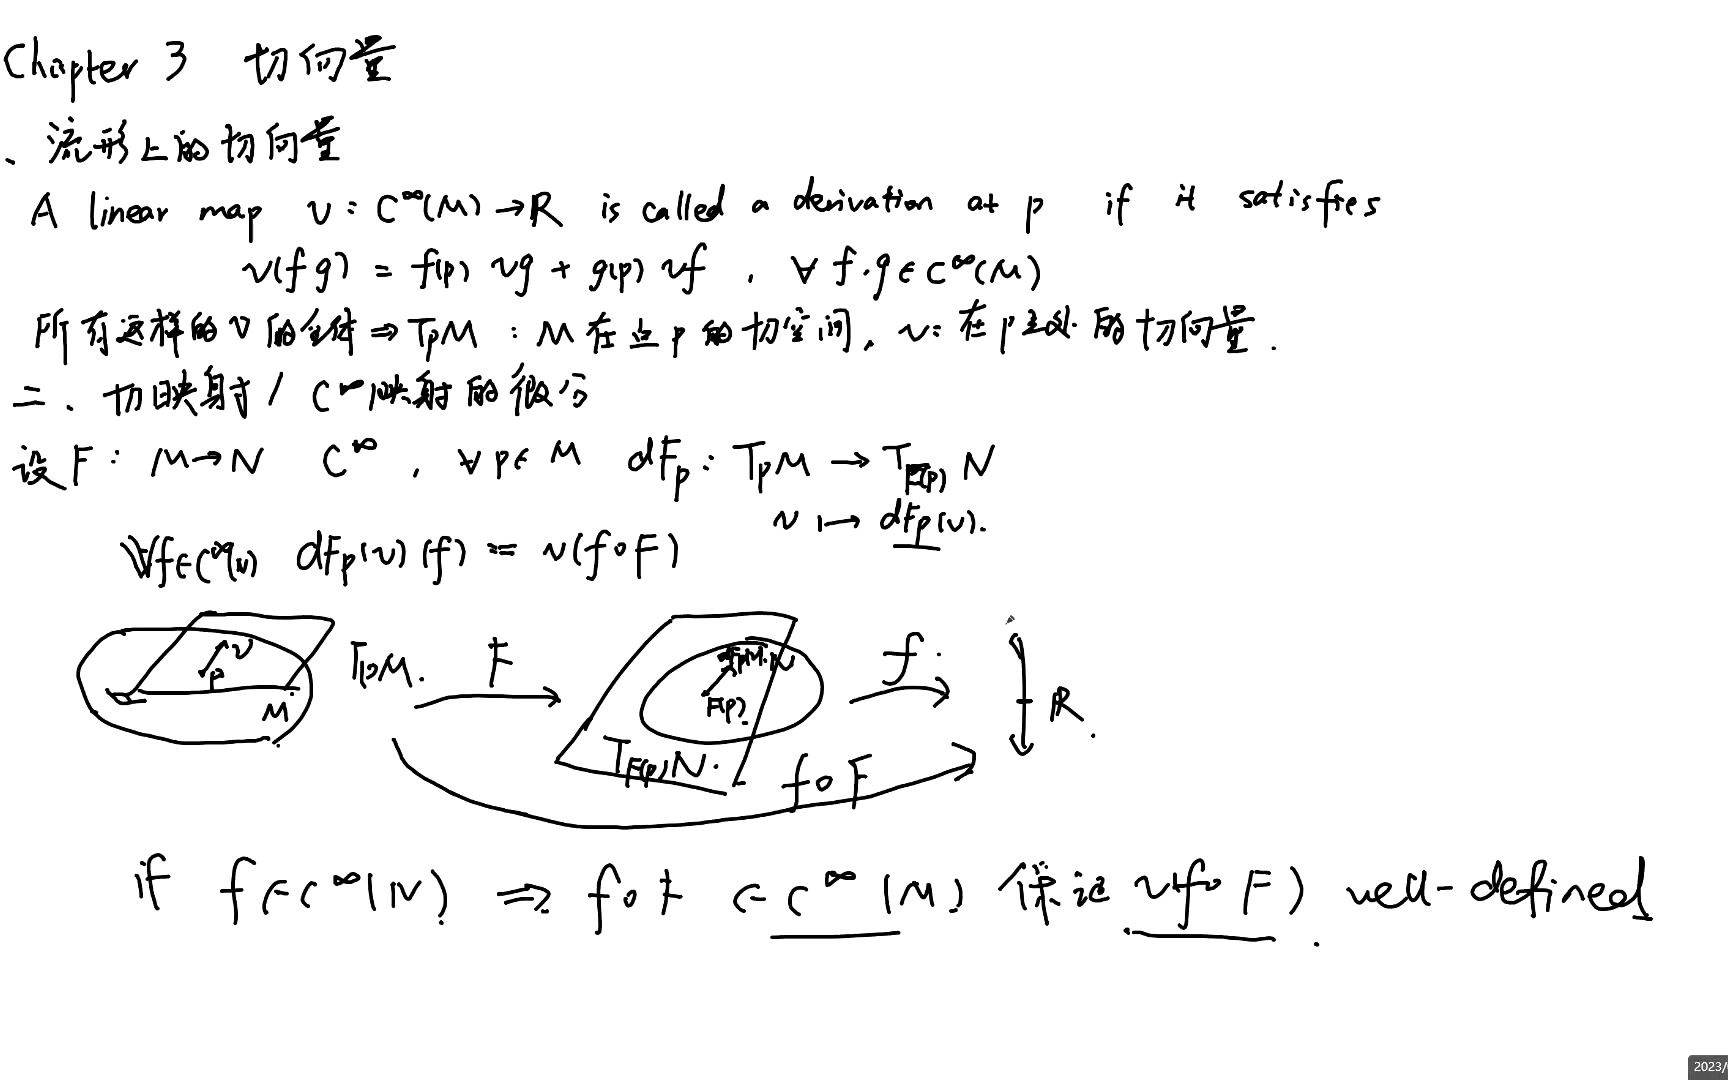 Chapter 3 切向量
、流形上的切向量
A linear map v : C^∞(M) → ℝ is called a derivation at p if it satisfies
v(fg) = f(p) vg + g(p) vf , ∀ f.g ∈ C^∞(M)
所有这样的 v 的全体 ⇒ T_pM : M 在点 p 的切空间, v: 在 p 点处的切向量.
二、切映射 / C^∞映射的微分
设 F : M → N C^∞ , ∀ p ∈ M dF_p : T_pM → T_{F(p)} N
v ↦ dF_p(v).
∀f∈C^∞(N) dF_p(v)(f) = v(f∘F)
v
p
M
T_pM.
F
F(p)
T_{F(p)}N.
f.
ℝ.
f∘F
if f ∈ C^∞(N) ⇒ f∘F ∈ C^∞(M) 保证 v(f∘F) well-defined.
2023/